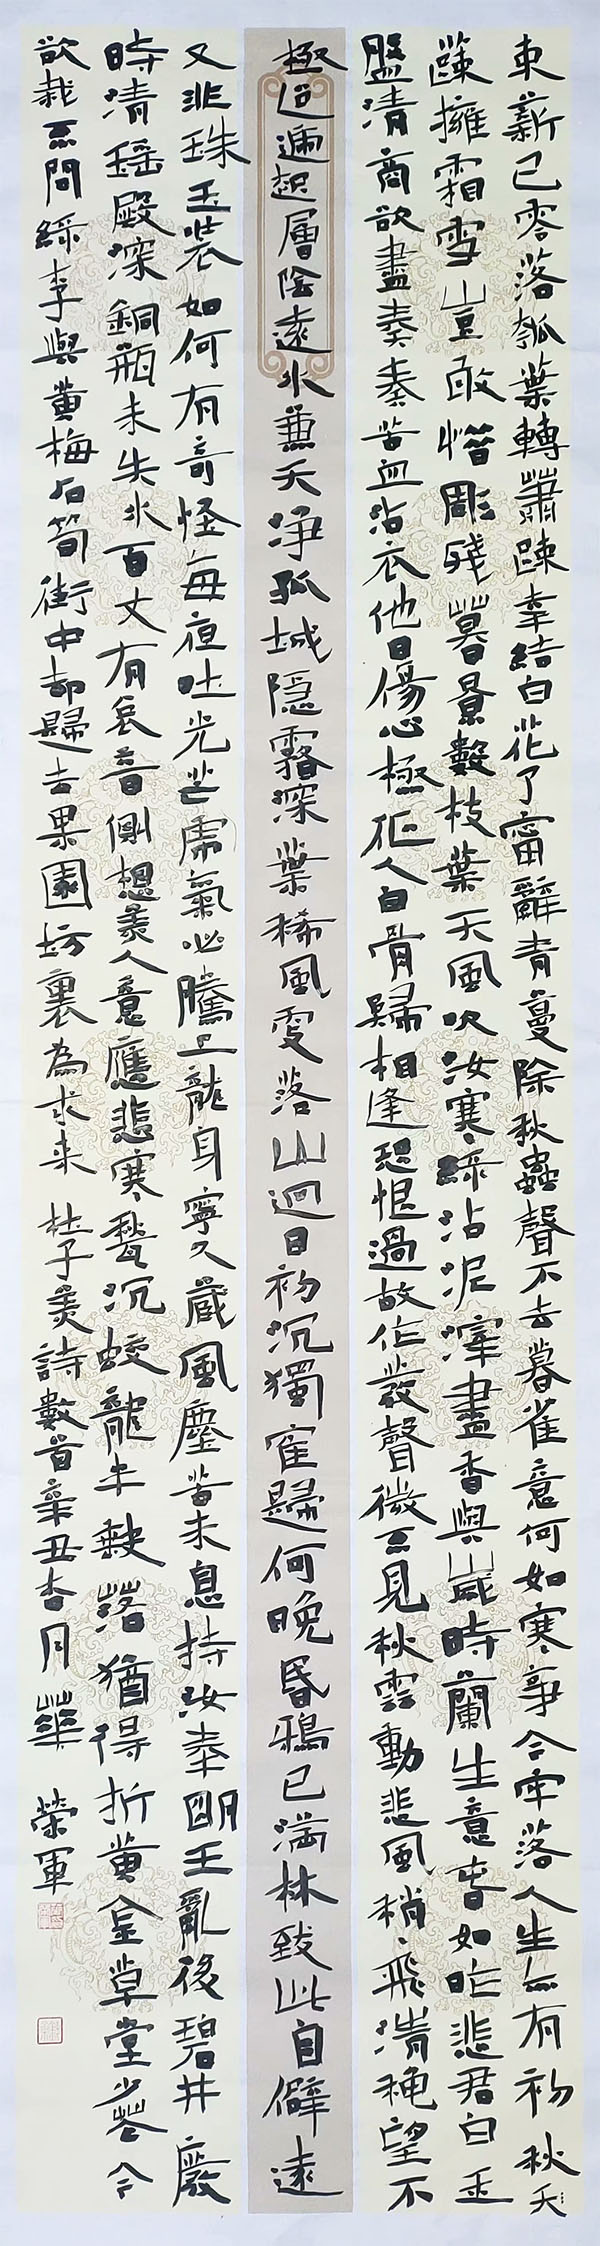 束薪已零落瓠葉轉蕭踈幸結白花了寧辭青蔓除秋蟲聲不去暮雀意何如寒事今牢落人生亦有初秋天
踈擁霜雪豈敢惜彫殘暮景數枝葉天風吹汝寒綠沾泥滓盡香與歲時闌生意春如昨悲君白玉
盤清商欲盡奏奏苦血沾衣他日傷心極征人白骨歸相逢恐恨過故作發聲微不見秋雲動悲風稍稍飛清秋望不
極迢遞起層陰遠水兼天淨孤城隱霧深葉稀風更落山迥日初沉獨隺歸何晚昏鴉已滿林致此自僻遠
又非珠玉裝如何有奇怪每夜吐光芒虎氣必騰上龍身寧久藏風塵苦未息持汝奉明王亂後碧井廢
時清瑤殿深銅瓶未失水百丈有哀音側想美人意應悲寒甃沉蛟龍半缺落猶得折黃金草堂少花今
欲栽不問綠李與黃梅石筍街中却歸去果園坊裏為求來 杜子美詩數首辛丑杏月華 榮軍